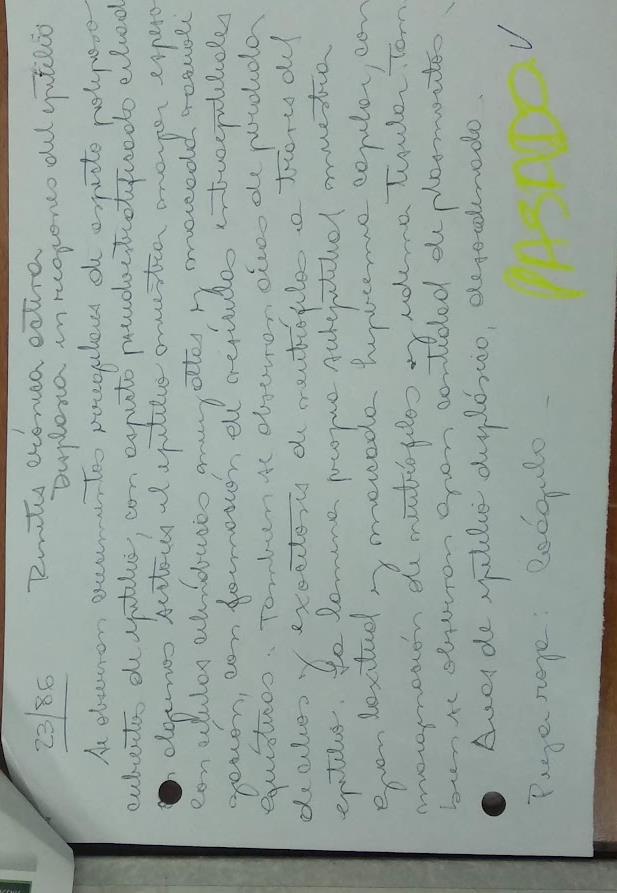 23/86
Rinitis crónica activa
Displasia in regiones del epitelio
Se observan incrementos irregulares de aspecto poliposo
cubiertos de epitelio, con aspecto pseudoestratificado ciliado
en algunos sectores el epitelio muestra mayor espesor
con células cilíndricas muy altas y marcada vacuoli
zación, con formación de vesículas intraepiteliales
quísticas. Tambien se observan áreas de perdida
de cilios y exocitosis de neutrófilos a traves del
epitelio. La lamina propia subepitelial muestra
gran laxitud y marcada hiperemia capilar, con
marginación de neutrófilos y edema tisular. Tam
bien se observan gran cantidad de plasmocitos.
Areas de epitelio displásico, desordenado.
Pieza roja: Coágulo -
PASADO